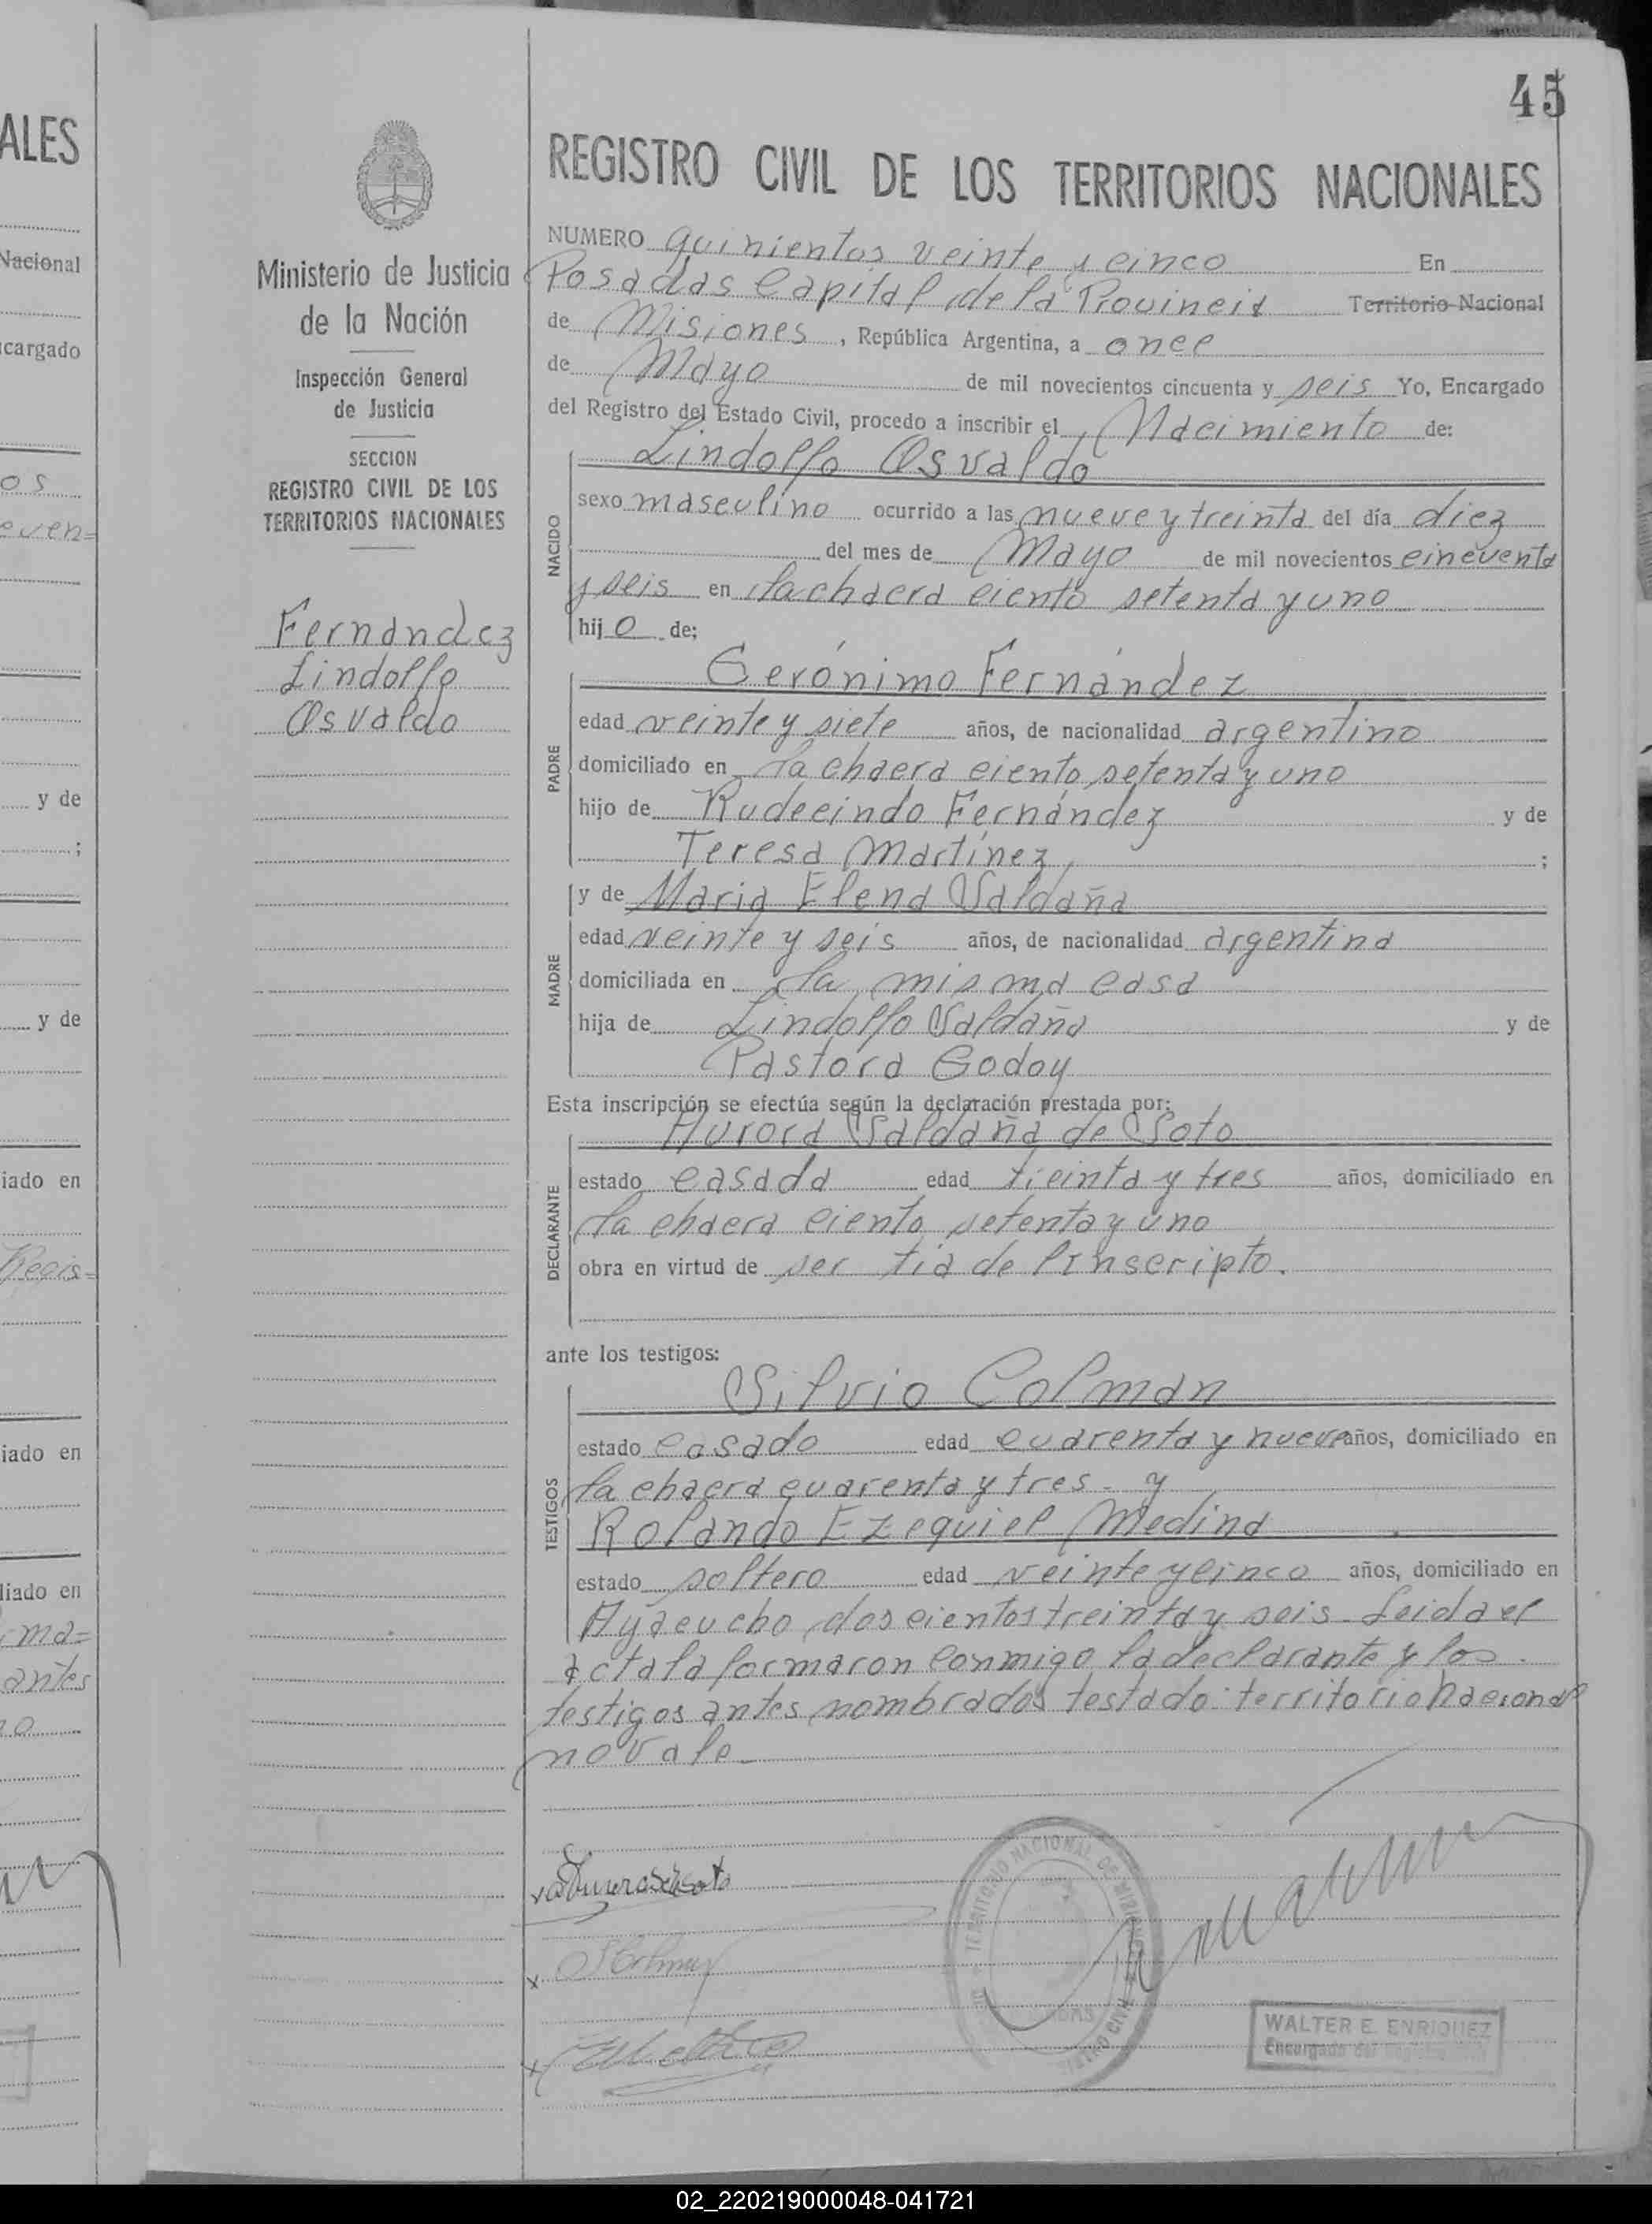 45
ALES
Nacional
cargado
os
even=
y de
;
y de
iado en
Regis=
iado en
liado en
ma=
antes
o
Ministerio de Justicia
de la Nación
Inspección General
de Justicia
SECCION
REGISTRO CIVIL DE LOS
TERRITORIOS NACIONALES
Fernández
Lindolfo
Osvaldo
REGISTRO CIVIL DE LOS TERRITORIOS NACIONALES
NUMERO quinientos veinte y cinco En
Posadas Capital de la Provincia Territorio Nacional
de Misiones, República Argentina, a once
de Mayo de mil novecientos cincuenta y seis Yo, Encargado
del Registro del Estado Civil, procedo a inscribir el Nacimiento de:
Lindolfo Osvaldo
NACIDO
sexo masculino ocurrido a las nueve y treinta del día diez
del mes de Mayo de mil novecientos cincuenta
y seis en la chacra ciento setenta y uno
hijo de;
Gerónimo Fernández
PADRE
edad veinte y siete años, de nacionalidad argentino
domiciliado en la chacra ciento setenta y uno
hijo de Rudecindo Fernández y de
Teresa Martínez ;
y de Maria Elena Saldaña
MADRE
edad veinte y seis años, de nacionalidad argentina
domiciliada en la misma casa
hija de Lindolfo Saldaña y de
Pastora Godoy
Esta inscripción se efectúa según la declaración prestada por:
Aurora Saldaña de Soto
DECLARANTE
estado casada edad treinta y tres años, domiciliado en
la chacra ciento setenta y uno
obra en virtud de ser tia del inscripto.
ante los testigos:
Silvio Colman
TESTIGOS
estado casado edad cuarenta y nueve años, domiciliado en
la chacra cuarenta y tres - y
Rolando Ezequiel Medina
estado soltero edad veinte y cinco años, domiciliado en
Ayacucho doscientos treinta y seis. Leida el
acta la formaron conmigo la declarante y los
testigos antes nombrados testado: territorio nacional
no vale
TERRITORIO NACIONAL DE MISIONES
WALTER E. ENRIQUEZ
Encargado del
02_220219000048-041721